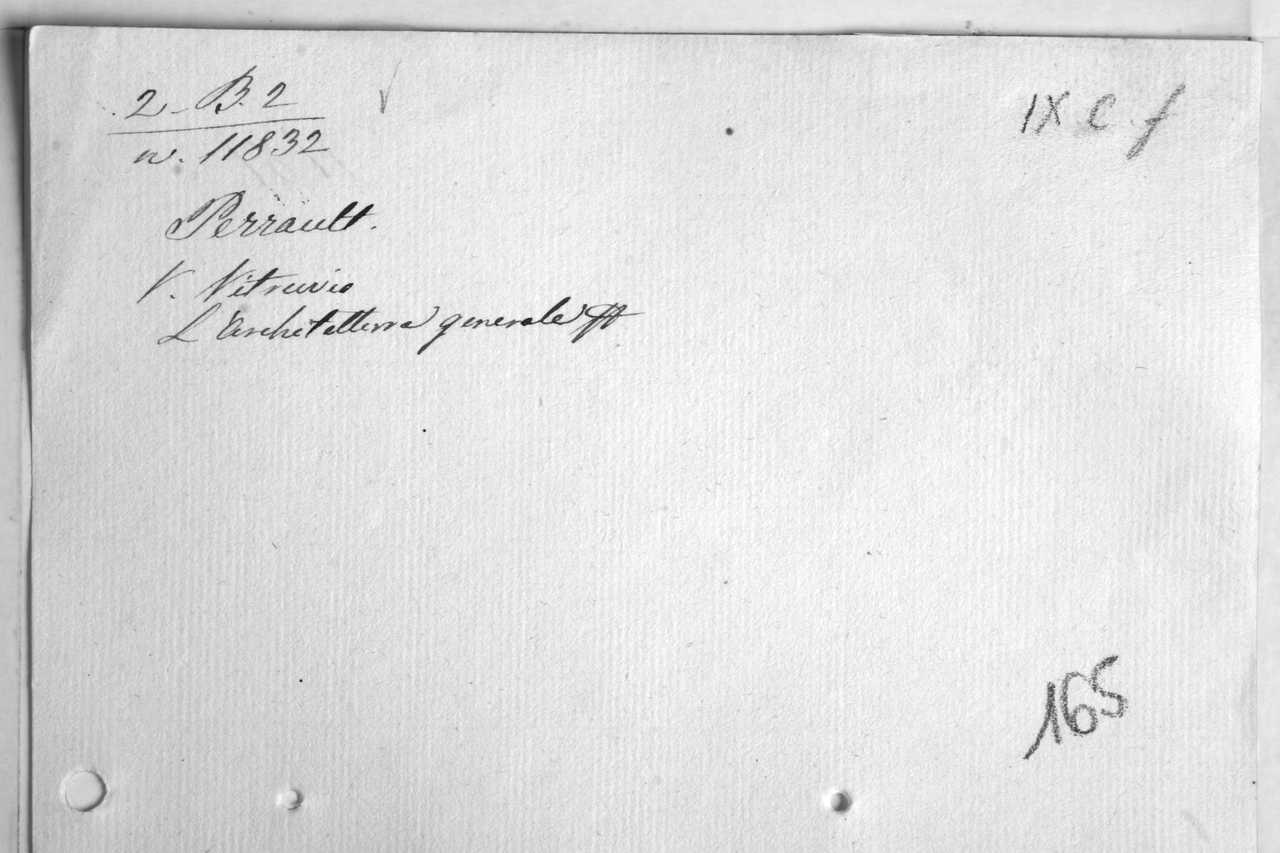 2. B. 2
IX C. f
n. 11832
Perrault.
V. Vitruvio
L'Architettura generale
165